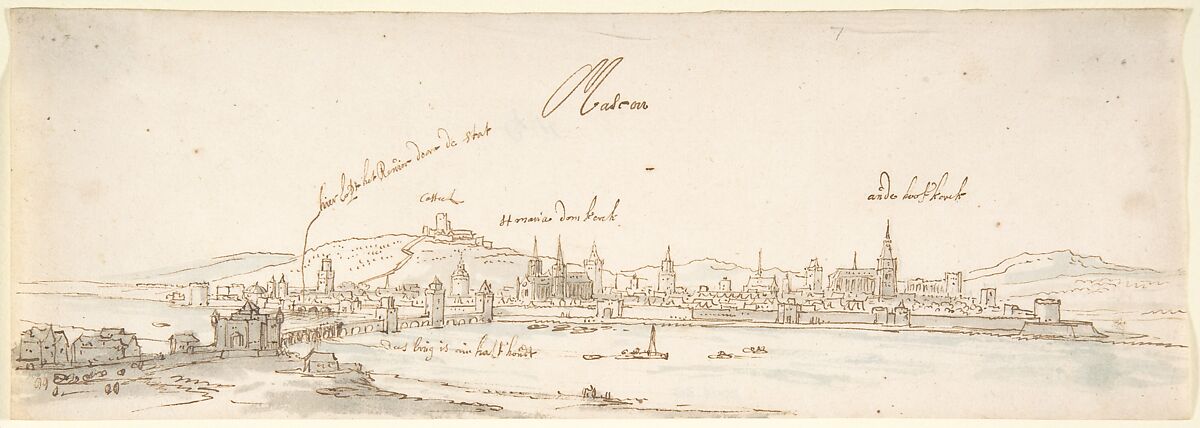 Mascon
hier loopt het Revier door de stat
Casteel
St maria dom kerck
ande hooft kerck
das brug is ein half hondt